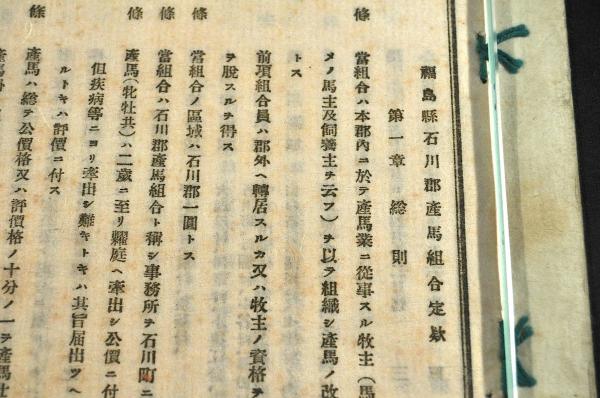 福島縣石川郡產馬組合定欵
第一章 總則
條 當組合ハ本郡內ニ於テ產馬業ニ從事スル牧主(馬
メノ馬主及飼養主チ云フ)チ以テ組織シ產馬ノ改
トス
前項組合員ハ郡外ヘ轉居スルカ又ハ牧主ノ資格チ
ヲ脫スルチ得ス
條 當組合ノ區域ハ石川郡一圓トス
條 當組合ハ石川郡產馬組合ト稱シ事務所チ石川町ニ
條 產馬(牝牡共)ハ二歲ニ至リ糶庭ヘ牽出シ公價ニ付
但疾病等ニヨリ牽出シ難キトキハ其旨屆出ツヘ
ルトキハ評價ニ付ス
條 產馬ハ總テ公價格又ハ評價格ノ十分ノ一チ產馬